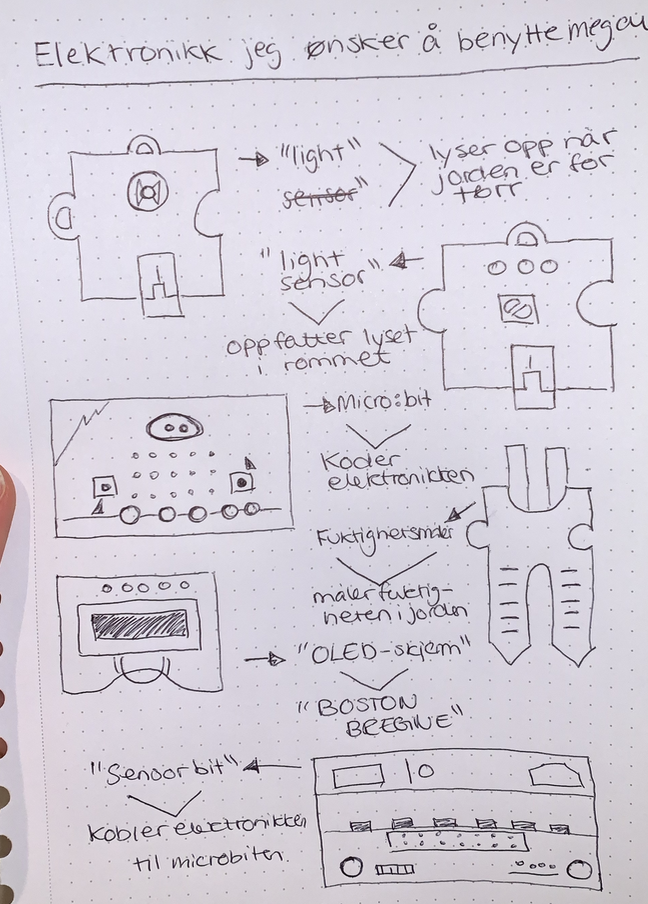 Elektronikk jeg ønsker å benytte meg au
"light"
sensor"
lyser opp når
jorden er for
tørr.
"light
sensor"
oppfatter lyset
i rommet
Micro:bit
Koder
elektronikken
Fuktighetsmåler
måler fuktig-
heten i jorden
"OLED-skjerm"
"BOSTON
BREGINE"
"Sensorbit"
10
Kobler elektronikken
til microbiten.